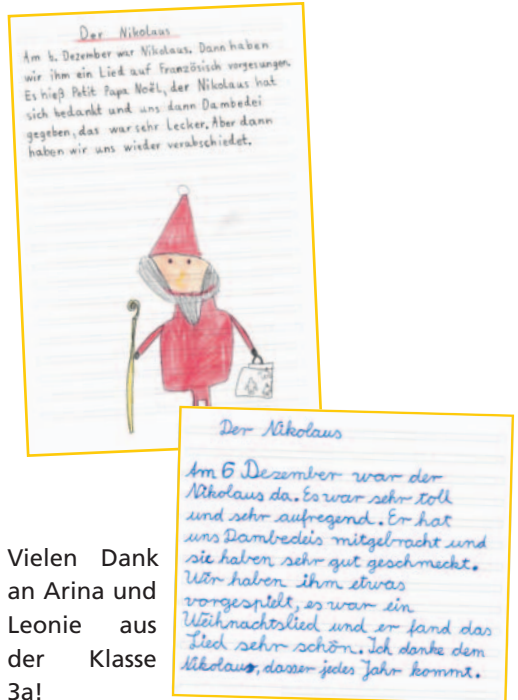 Der Nikolaus
Am 6. Dezember war Nikolaus. Dann haben
wir ihm ein Lied auf Französisch vorgesungen.
Es hieß Petit Papa Noël, der Nikolaus hat
sich bedankt und uns dann Dambedei
gegeben, das war sehr Lecker. Aber dann
haben wir uns wieder verabschiedet.
Der Nikolaus
Am 6 Dezember war der
Nikolaus da. Es war sehr toll
und sehr aufregend. Er hat
uns Dambedeis mitgebracht und
sie haben sehr gut geschmeckt.
Wir haben ihm etwas
vorgespielt, es war ein
Weihnachtslied und er fand das
Lied sehr schön. Ich danke dem
Nikolaus, dasser jedes Jahr kommt.
Vielen Dank
an Arina und
Leonie aus
der Klasse
3a!